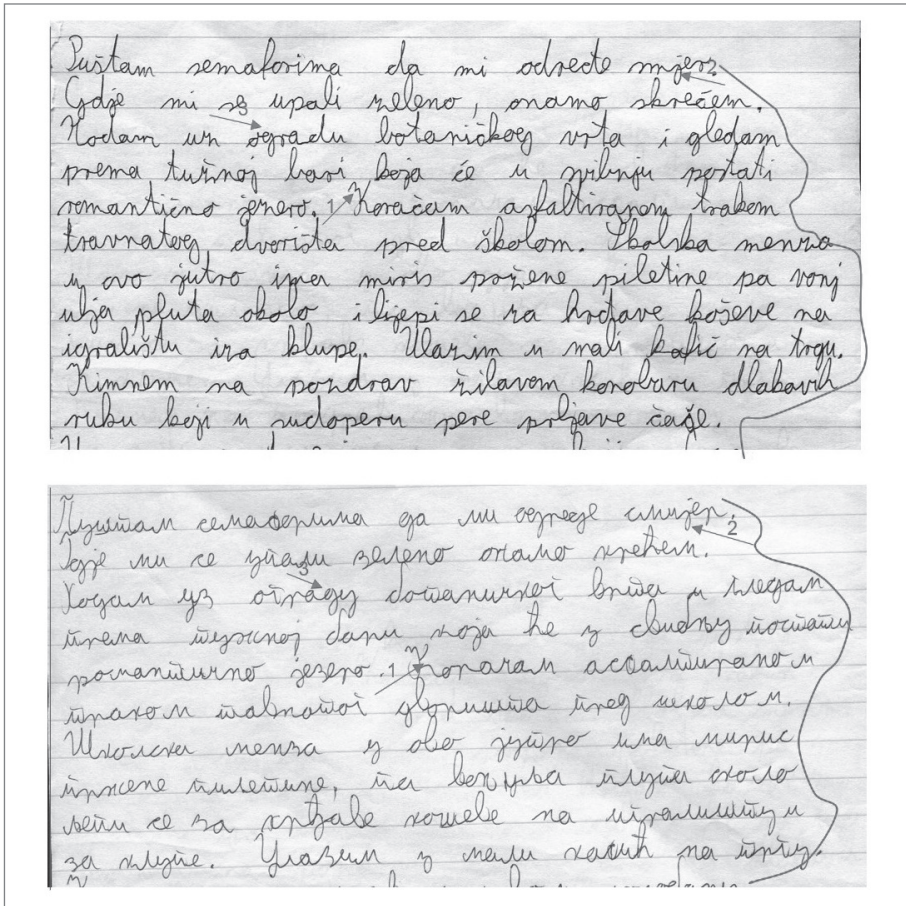 Puštam semaforima da mi odrede smjer. 2
Gdje mi se upali zeleno, onamo skrećem.
3
Hodam uz ogradu botaničkog vrta i gledam
prema tužnoj bari koja će u svibnju postati
romantično jezero. 1 Koračam asfaltiranom trakom
travnatog dvorišta pred školom. Školska menza
u ovo jutro ima miris pržene piletine pa vonj
ulja pluta okolo i lijepi se za hrđave koševe na
igralištu iza klupe. Ulazim u mali kafić na trgu.
Kimnem na pozdrav žilavom konobaru dlakavih
ruku koji u sudoperu pere prljave čaše.
Пуштам семафорима да ми одреде смијер. 2
Гдје ми се упали зелено онамо крећем.
3
Ходам уз ограду ботаничког врта и гледам
према тужној бари која ће у свибњу постати
романтично језеро. 1 Корачам асфалтираном
траком тавнатог дворишта пред школом.
Школска менза у ово јутро има мирис
пржене пилетине, па воњ уља плута около
лепи се за хрђаве кошеве на игралишту и
за клупе. Улазим у мали кафић на тргу.